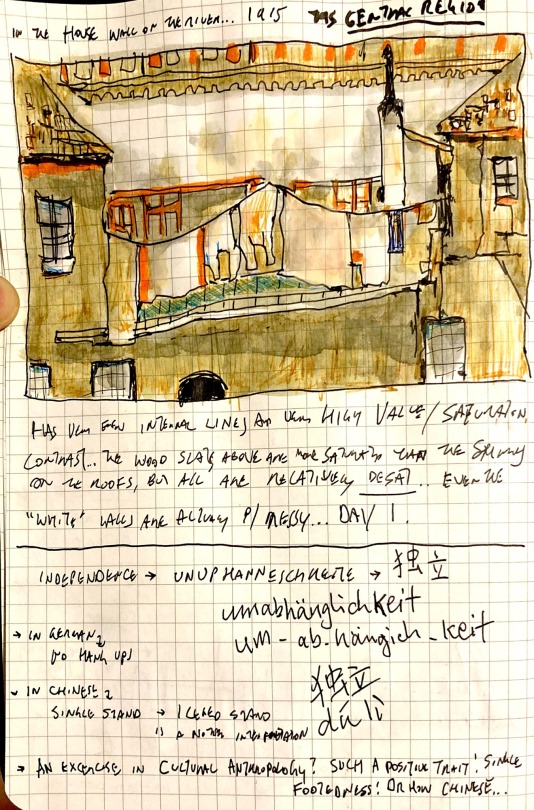 IN THE HOUSE WALL ON THE RIVER... 1915
THIS CENTRAL REGION
HAS VERY EVEN INTERNAL LINES AND VERY HIGH VALUE/SATURATION
CONTRAST... THE WOOD SLATS ABOVE ARE MORE SATURATED THAN THE
ON THE ROOFS, BUT ALL ARE RELATIVELY DESAT... EVEN THE
"WHITE" WALLS ARE ACTUALLY P/ MESSY... DAY 1.
INDEPENDENCE → → 独立
unabhänglichkeit
um-ab-hängich-keit
→ IN GERMAN,
NO HANG UPS
→ IN CHINESE,
SINGLE STAND → 1 LEGGED STAND
IS ANOTHER INTERPRETATION
独立
dú lì
→ AN EXCERCISE IN CULTURAL ANTHROPOLOGY? SUCH A POSITIVE TRAIT! SINGLE
FOOTEDNESS! OR HOW CHINESE...